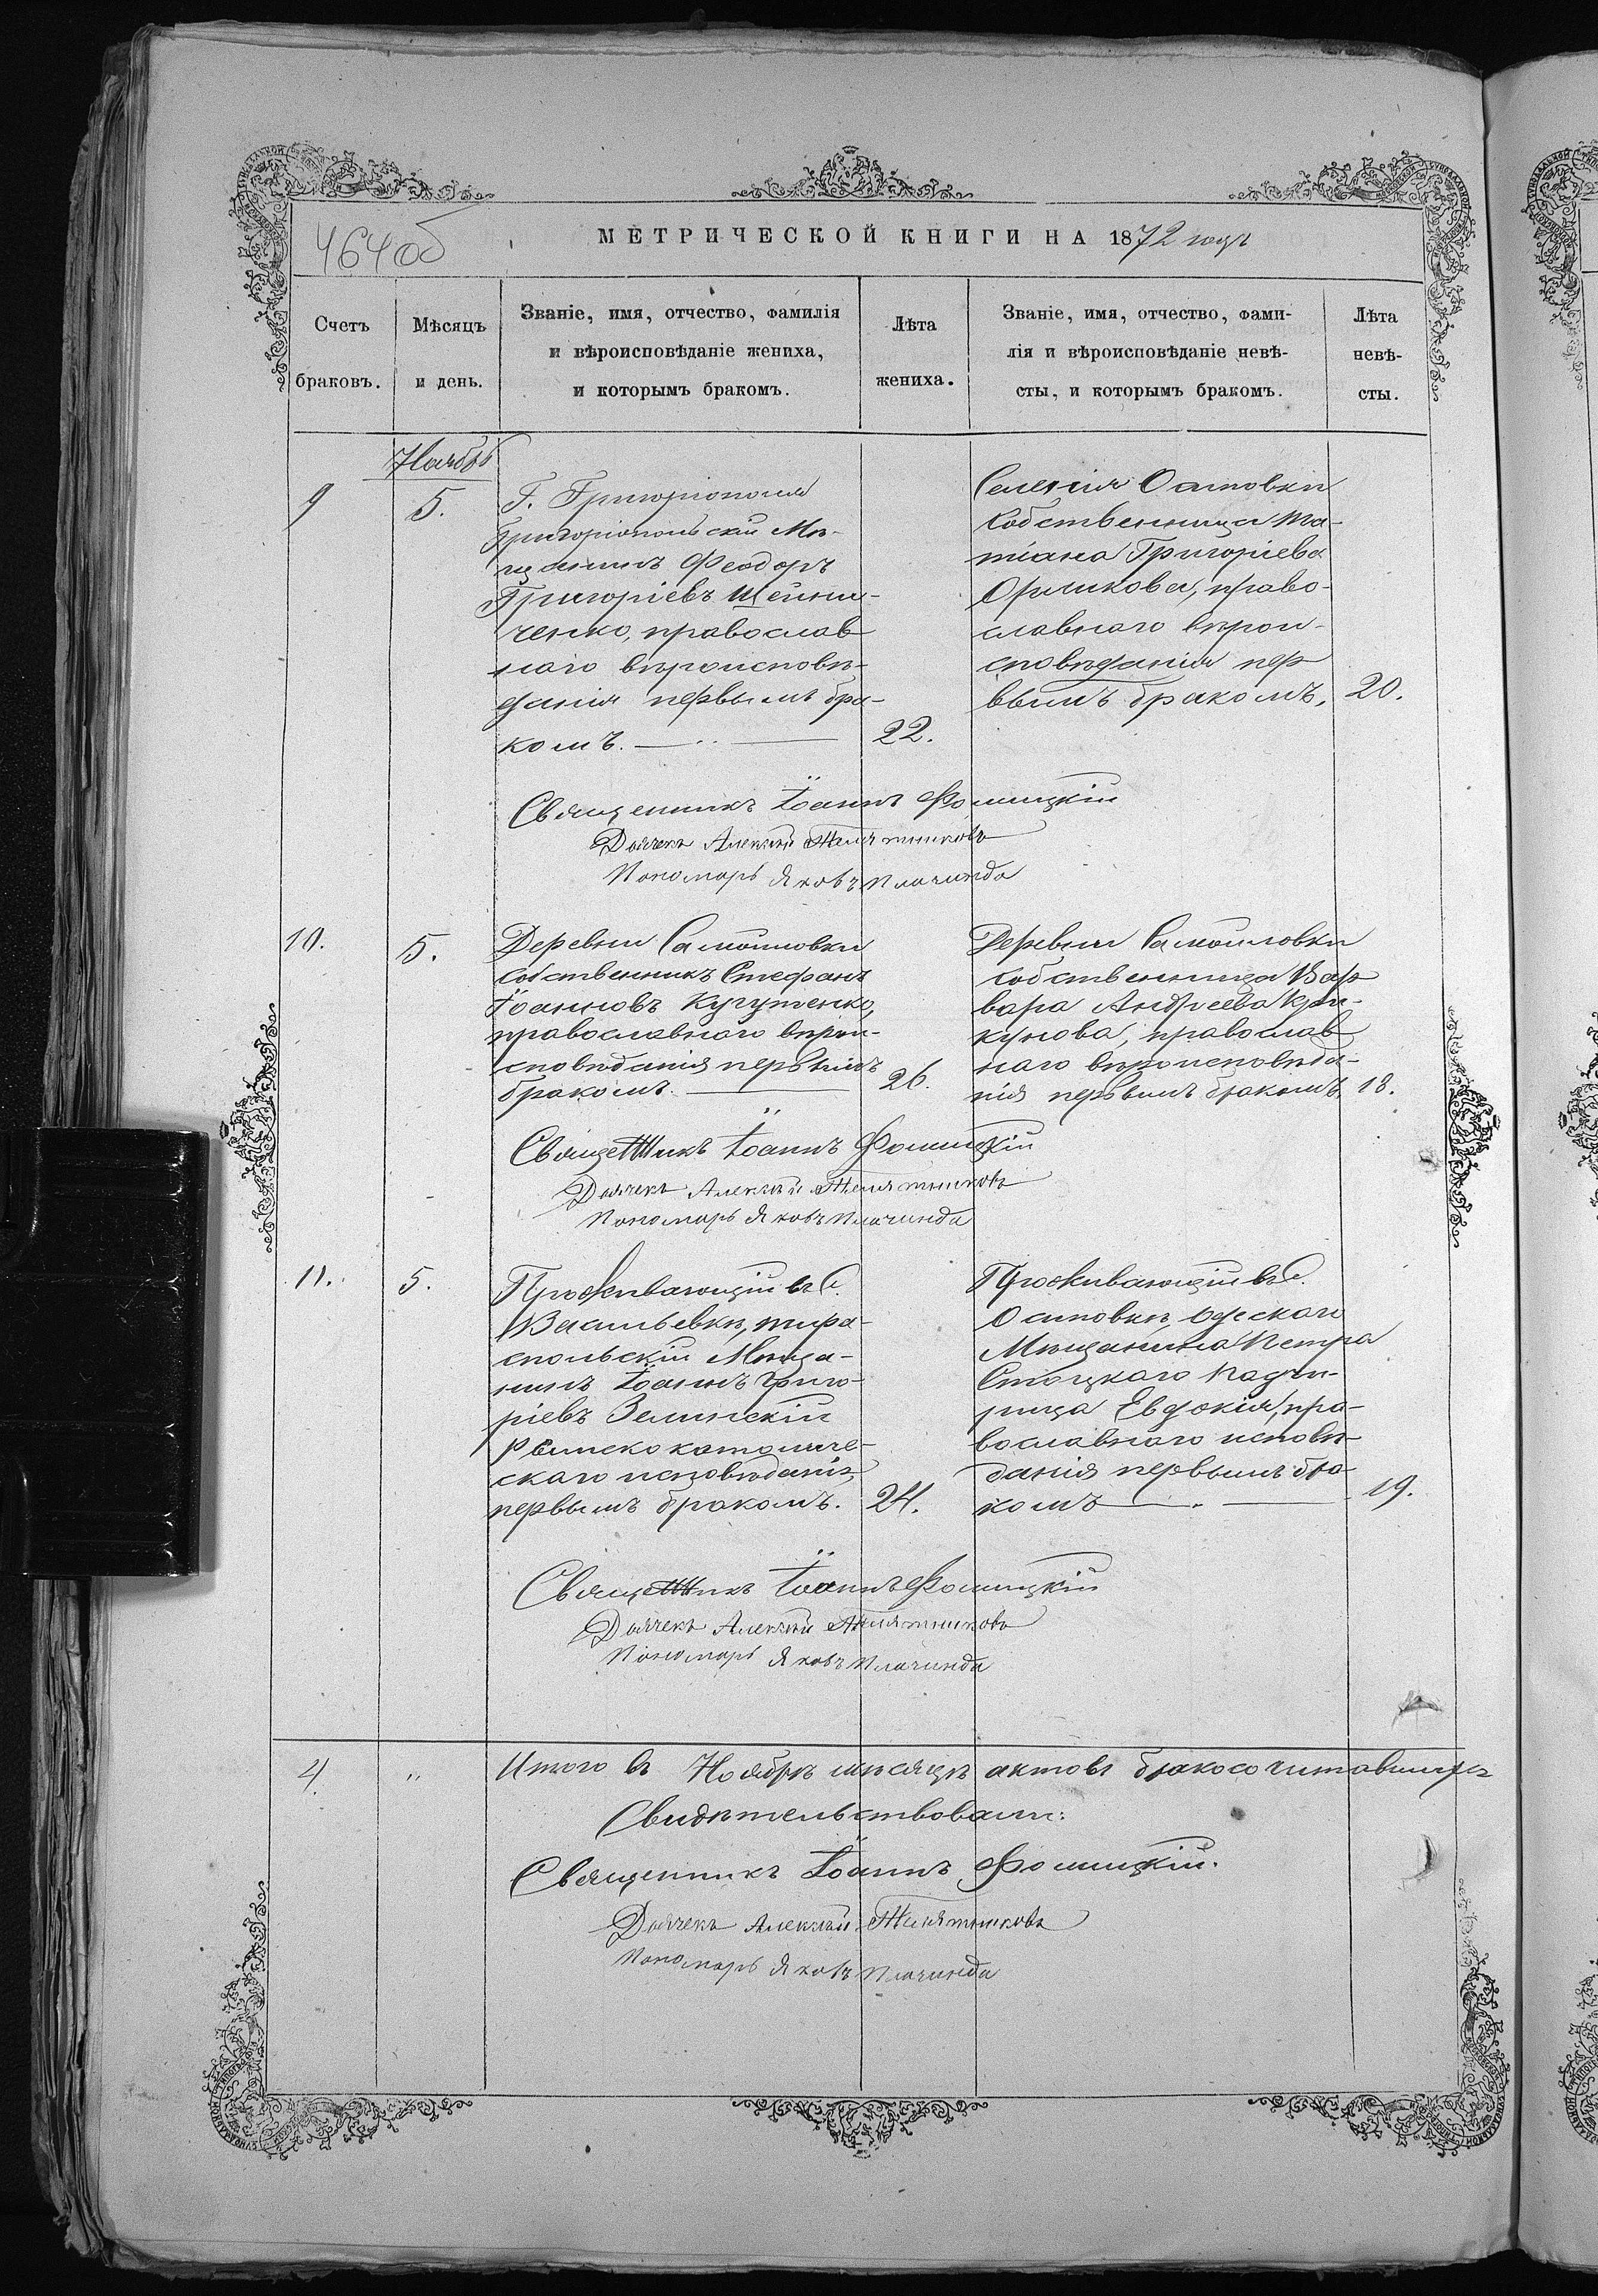 464 об
МЕТРИЧЕСКОЙ КНИГИ НА 1872 годъ
Счетъ браковъ.
Мѣсяцъ и день.
Званіе, имя, отчество, фамилія
и вѣроисповѣданіе жениха,
и которымъ бракомъ.
Лѣта жениха.
Званіе, имя, отчество, фами-
лія и вѣроисповѣданіе невѣ-
сты, и которымъ бракомъ.
Лѣта невѣ-
сты.
Ноябрь
9
5.
Г. Григоріополя
Григоріопольскій Мѣ-
щанинъ Феодоръ
Григоріевъ Шейни-
ченко, православ
наго вѣроисповѣ-
данія первымъ бра-
комъ.
22.
Селенія Осиповки
Собственница Та-
тіана Григоріева
Орликова, право-
славнаго вѣрои-
сповѣданія пер
вымъ бракомъ.
20.
Священникъ Іоаннъ Фомицкій
Дьячекъ Алексѣй Телятниковъ
Пономарь Яковъ Плачинда
10.
5.
Деревни Самойловки
собственникъ Стефанъ
Іоанновъ Кугутенко,
православнаго вѣрои-
сповѣданія первымъ
бракомъ.
26.
Деревни Самойловки
собственница Вар
вара Андреева Кри-
кунова, православ
наго вѣроисповѣда-
нія первымъ бракомъ.
18.
Священникъ Іоаннъ Фомицкій
Дьячекъ Алексѣй Телятниковъ
Пономарь Яковъ Плачинда
11.
5.
Проживающій въ С.
Васильевкѣ, тира-
спольскій Мѣща-
нинъ Іоаннъ Григо-
ріевъ Зелинскій
Римско католиче-
скаго исповѣданія
первымъ бракомъ.
24.
Проживающій въ С.
Осиповкѣ, Одескаго
Мѣщанина Петра
Стоцкаго Падче-
рица Евдокія, пра-
вославнаго исповѣ-
данія первымъ бра-
комъ
19.
Священникъ Іоаннъ Фомицкій
Дьячекъ Алексѣй Телятниковъ
Пономарь Яковъ Плачинда
4.
"
Итого въ Ноябрѣ мѣсяцѣ актовъ бракосочитавшихъ
Свидѣтельствовали:
Священникъ Іоаннъ Фомицкій.
Дьячекъ Алексѣй Телятниковъ
Пономарь Яковъ Плачинда